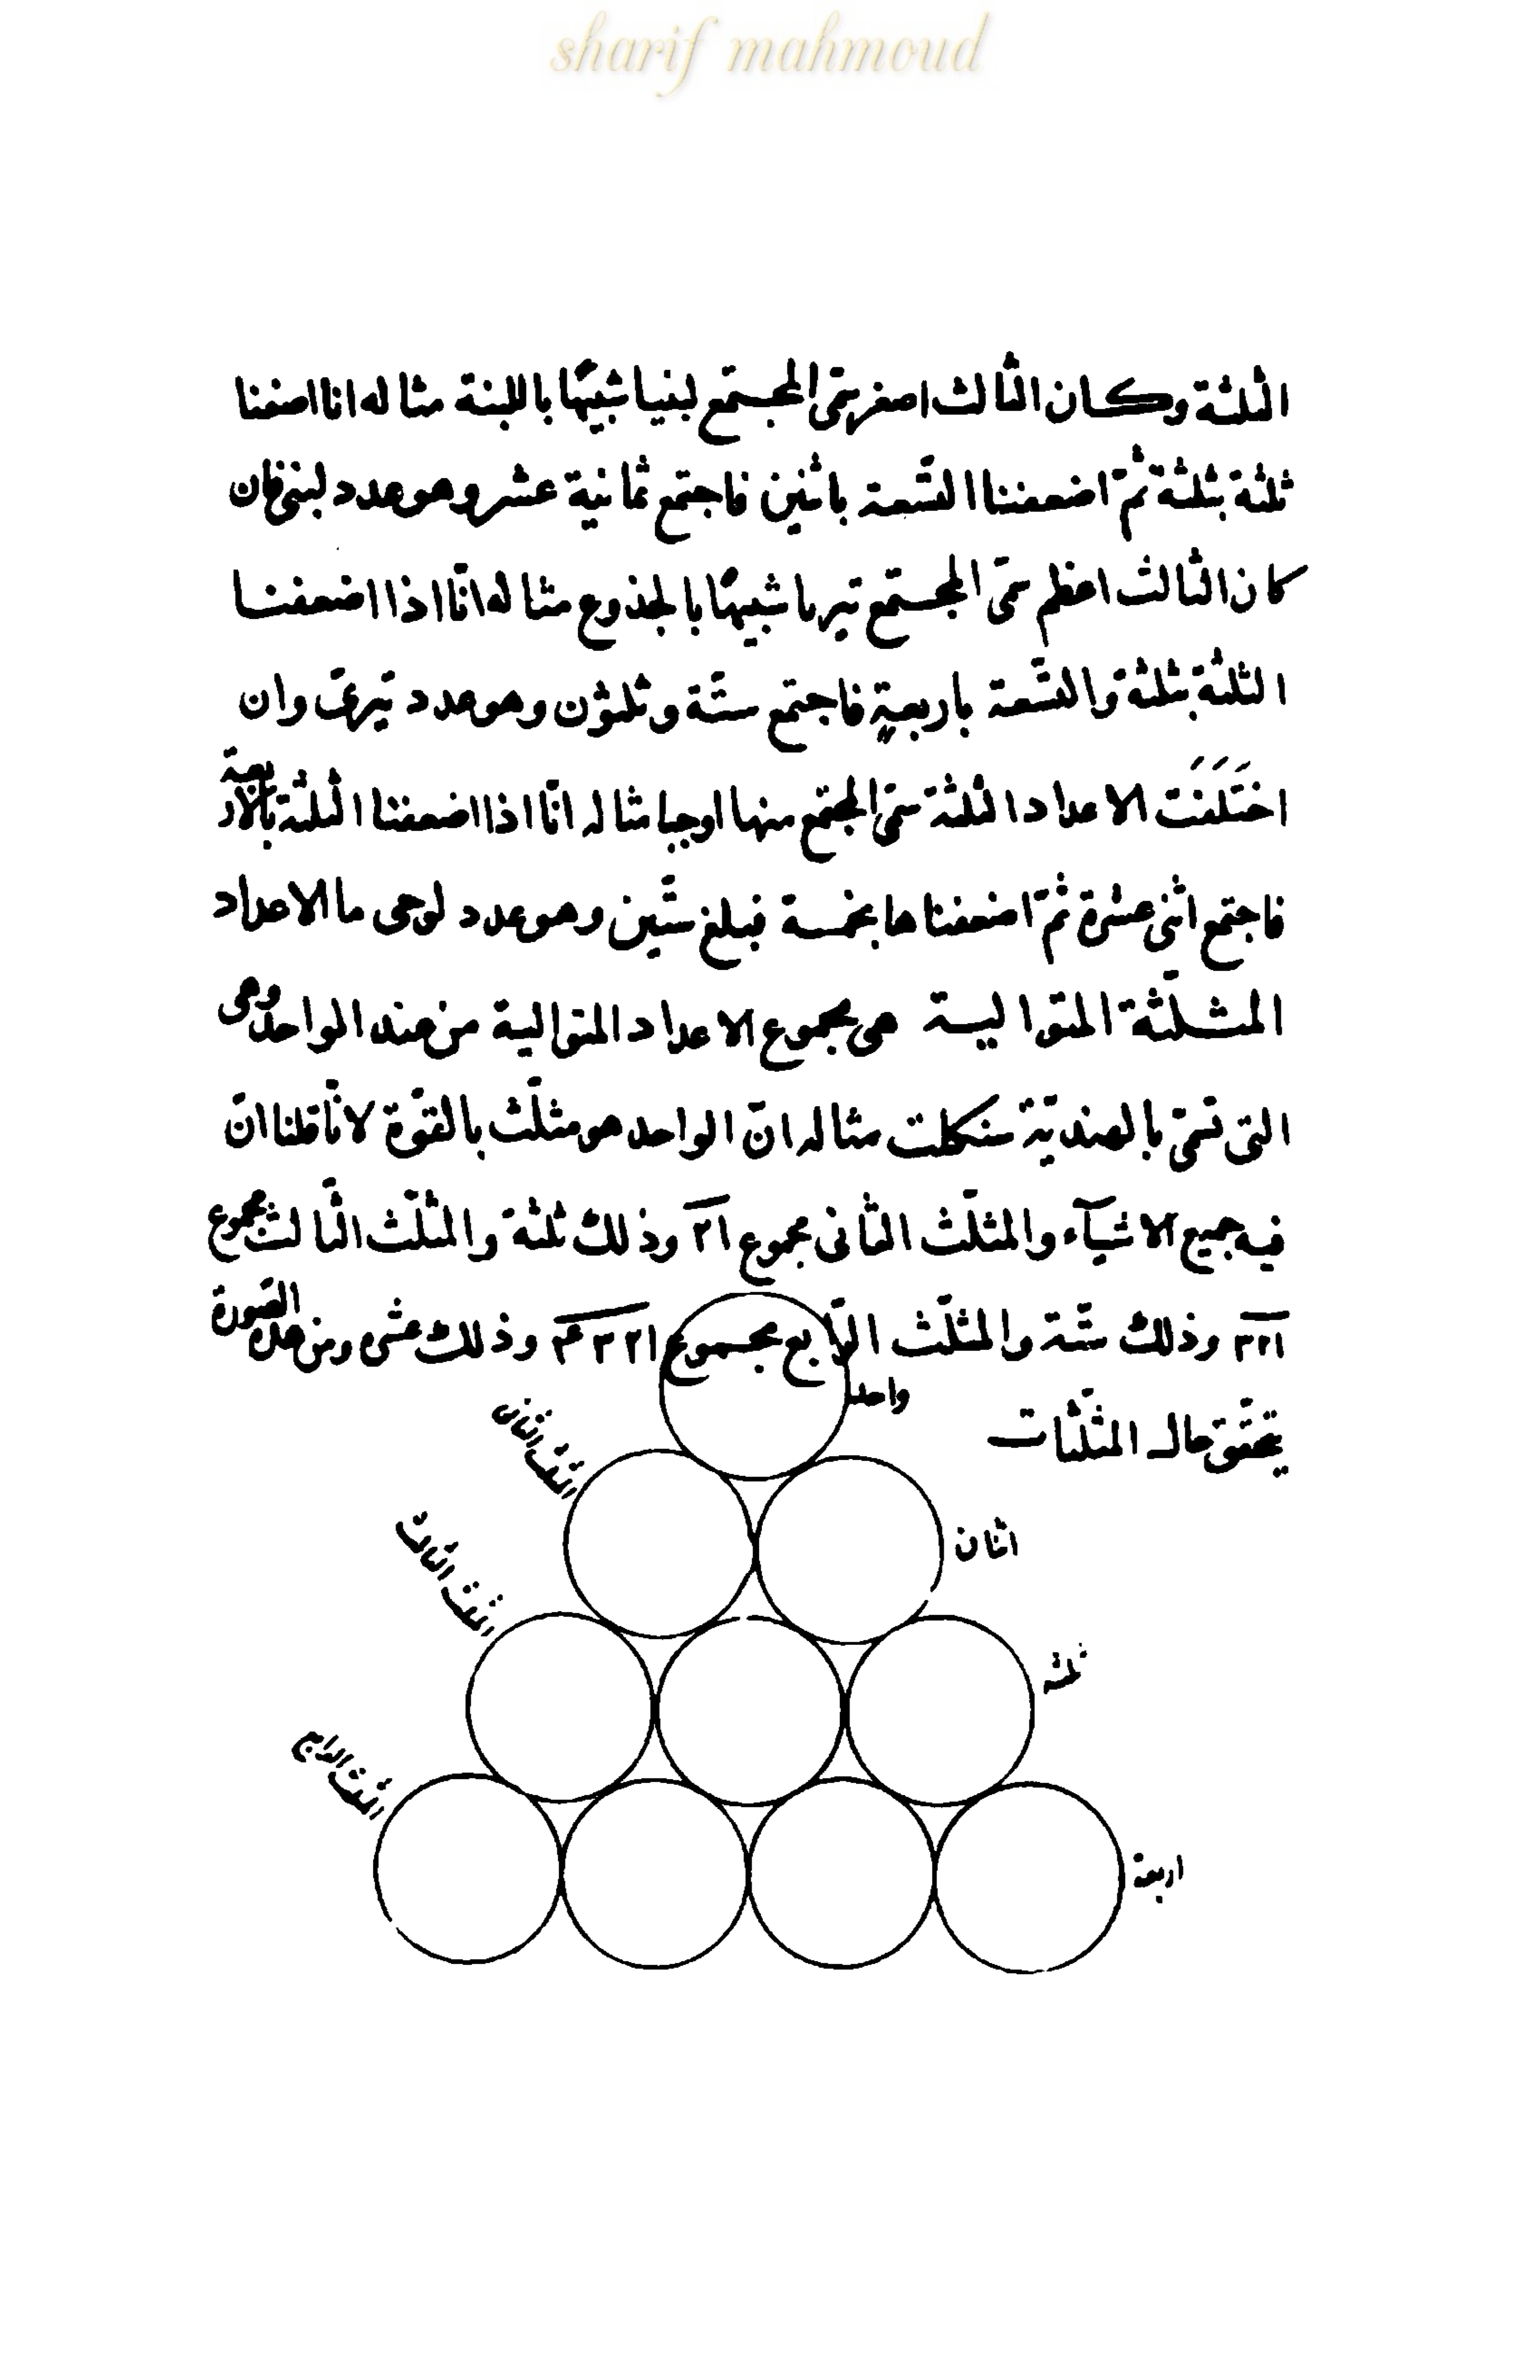 sharif mahmoud
الثلثة وكان الثالث اصغر سمّى المجتمع لبنيا شبيهًا باللبنة مثاله انا اضعفنا
ثلثة بثلثة ثمّ اضعفنا التسّعة باثنين فاجتمع ثمانية عشر وهو عدد لبنى فان
كان الثالث اعظم سمّى المجتمع تيريا شبيهًا بالجذوع مثاله انّا اذا اضعفنا
الثلثة بثلثة والتسّعة باربعةٍ فاجتمع ستّة وثلثون وهو عدد تيرىّ وان
اختَلَفَت الاعداد الثلثة سمّى المجتمع منها لوحيا مثاله انّا اذا اضعفنا الثلثة بالاربعة
فاجتمع اثنى عشرة ثمّ اضعفناها بخمسة فبلغ ستّين وهو عدد لوحى ما الاعداد
المثلّثة المتوالية هى مجموع الاعداد المتوالية من عند الواحد وهى
التى تسمّى بالهنديّة سنكلت مثاله انّ الواحد هو مثلّث بالقوّة لانّا قلنا انّ
فيه جميع الاشيآء والمثلّث الثّانى مجموع ٢١ وذلك ثلثة والمثلّث الثّالث مجموع
٣٢١ وذلك ستّة والمثلّث الرّابع مجموع ٤٣٢١ وذلك عشرة ومن هذه الصّورة
يتحقّق حال المثلّثات
واحد
المثلّث الثانى
اثنان
المثلّث الثّالث
ثلثة
المثلّث الرابع
اربعة